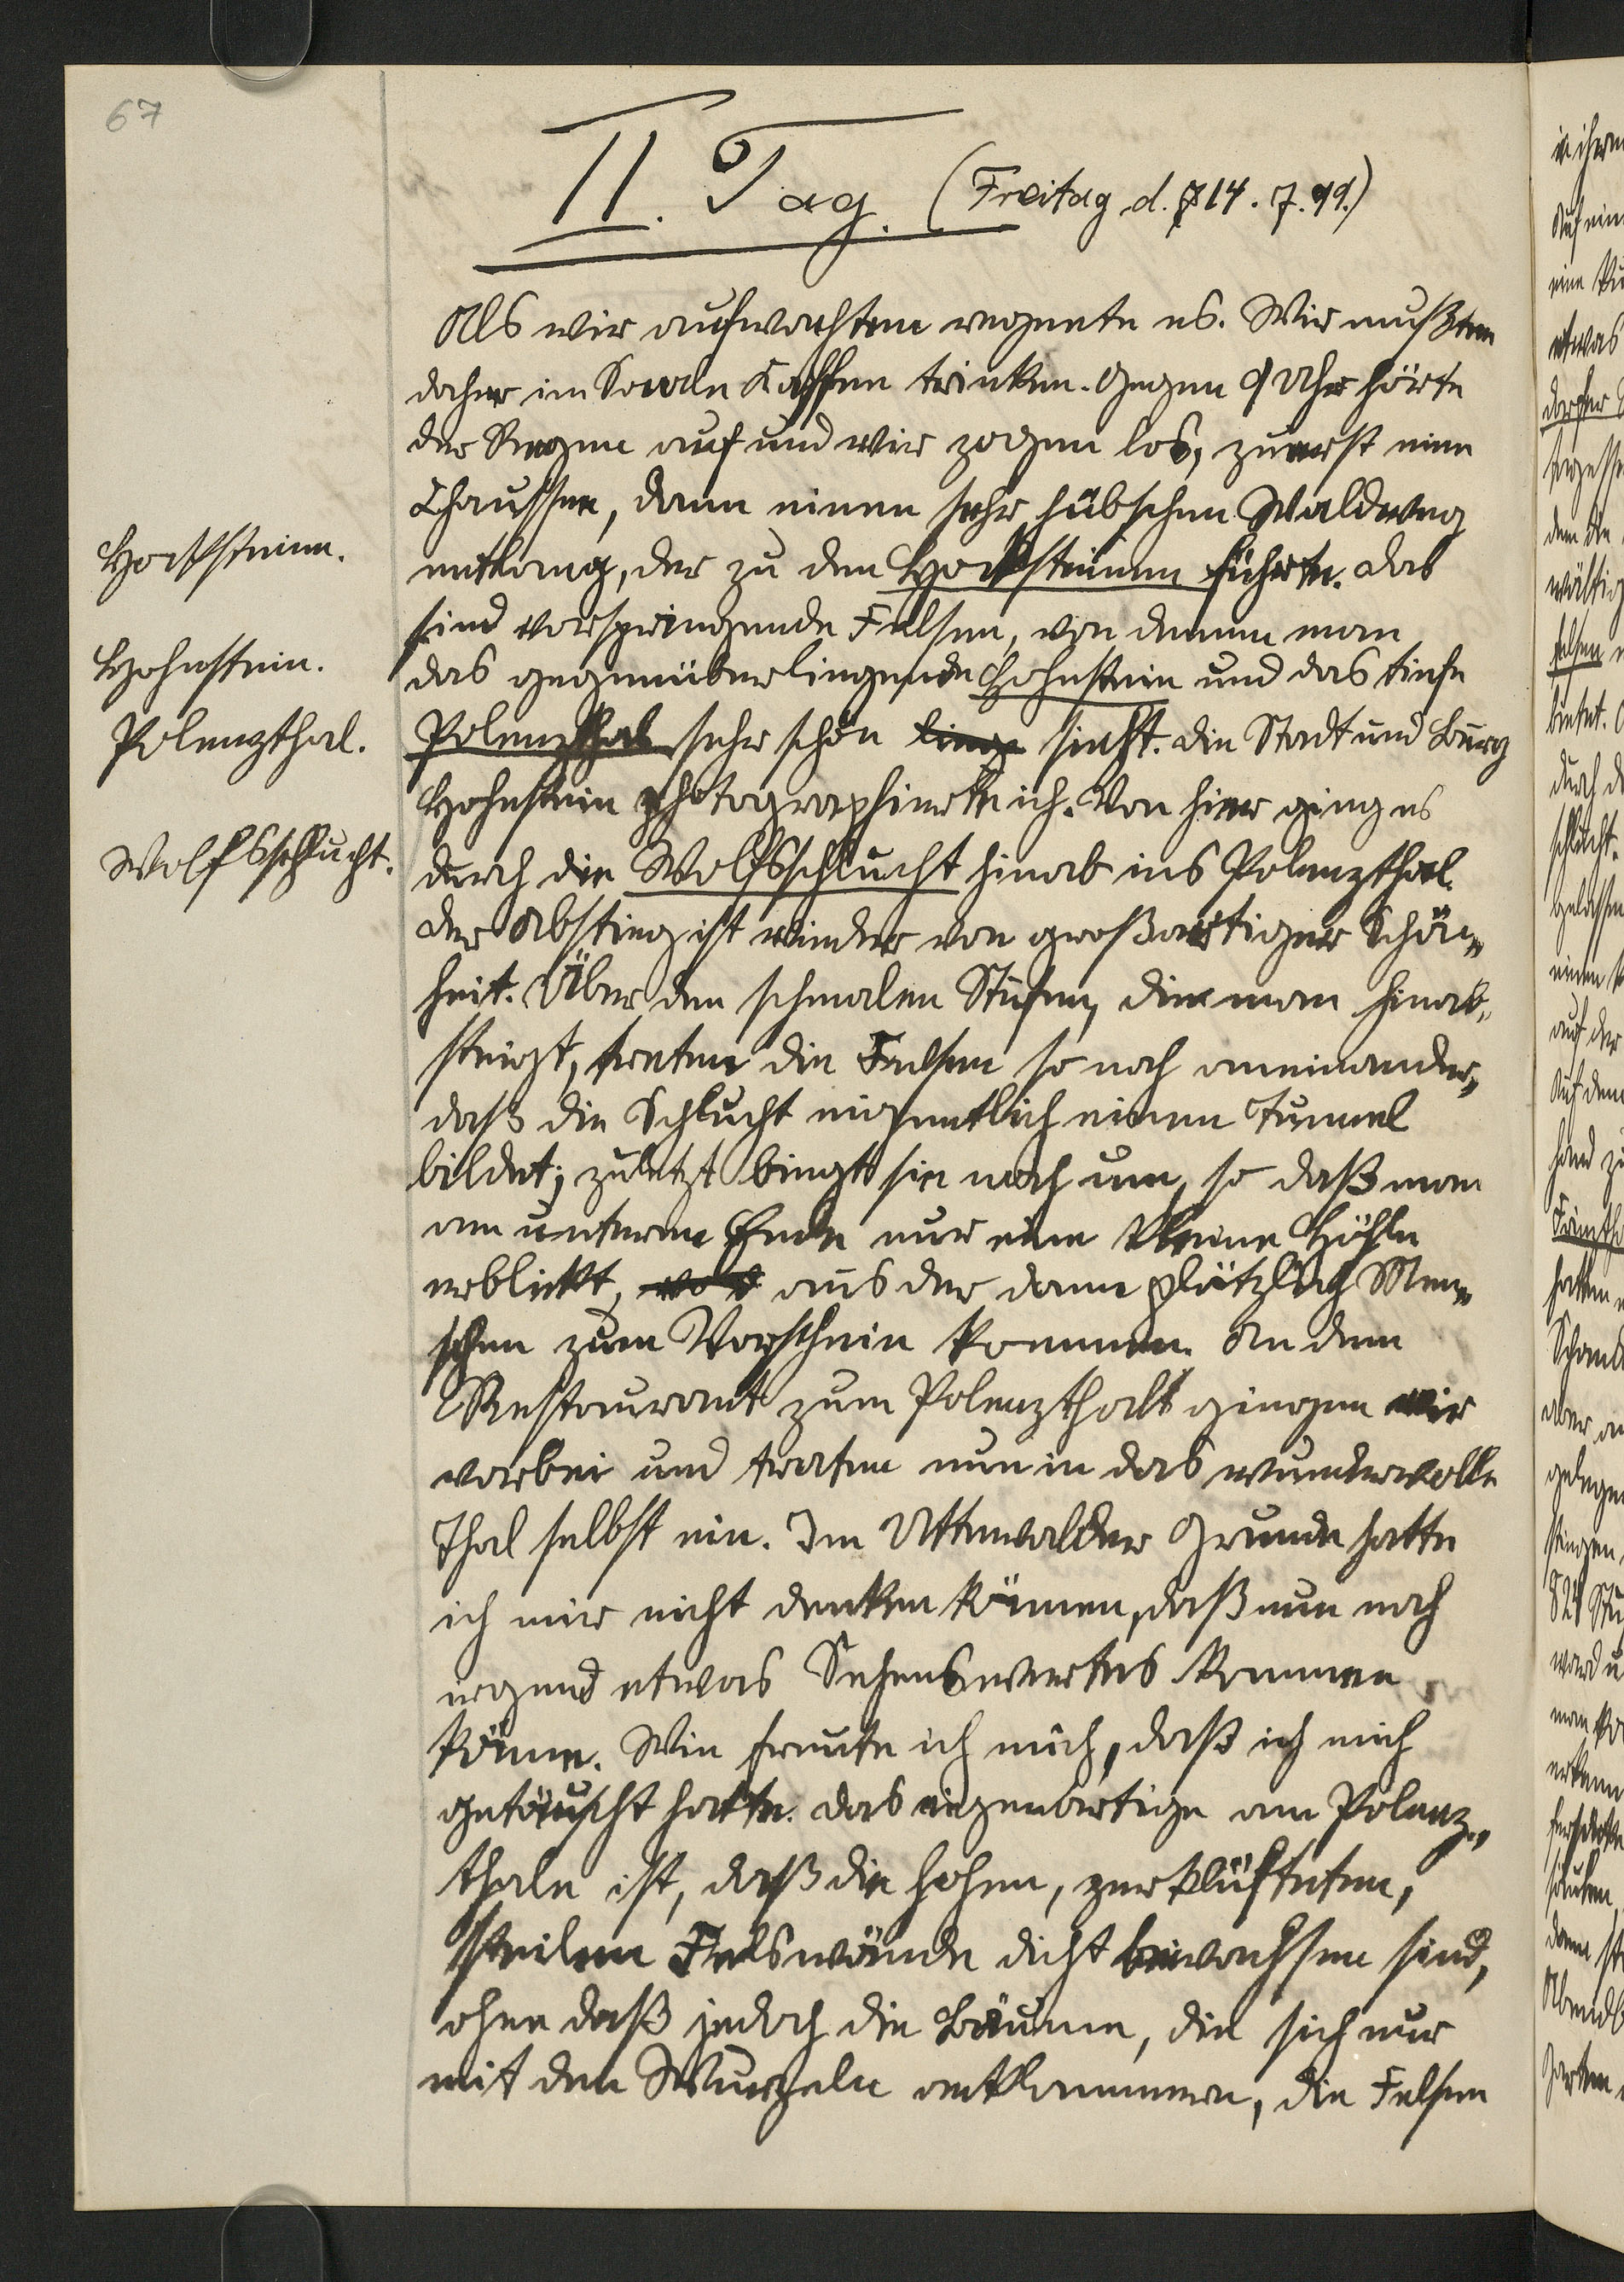 67
II. Tag. (Freitag d. 14. 7. 99.)
Als wir aufwachten regnete es. Wir mußten
daher im Saale Kaffee trinken. Gegen 9 Uhr hörte
der Regen auf und wir zogen los, zuerst eine
Chaussee, dann einen sehr hübschen Waldweg
Hocksteine.
entlang, der zu den Hocksteinen führte. Das
sind vorspringende Felsen, von denen man
Hohnstein.
das gegenüberliegende Hohnstein und das tiefe
Polenzthal.
Polenzthal sehr schön liegt sieht. Die Stadt und Burg
Hohnstein photographierte ich. Von hier ging es
Wolfsschlucht.
durch die Wolfsschlucht hinab ins Polenzthal.
Der Abstieg ist wieder von großartiger Schön„
heit. Über den schmalen Stufen, die man hinab„
steigt, treten die Felsen so nah aneinander,
daß die Schlucht eigentlich einen Tunnel
bildet; zuletzt biegt sie noch um, so daß man
am unteren Ende nur eine kleine Höhle
erblickt, aus der dann plötzlich Men„
schen zum Vorschein kommen. An dem
Restaurant zum Polenzthal gingen wir
vorbei und traten nun in das wundervolle
Thal selbst ein. Im Uttewalder Grunde hatte
ich mir nicht denken können, daß nun noch
irgend etwas Sehenswertes kommen
könne. Wie freute ich mich, daß ich mich
getäuscht hatte. Das eigenartige am Polenz„
thale ist, daß die hohen, zerklüfteten,
steilen Felswände dicht bewachsen sind,
ohne daß jedoch die Bäume, die sich nur
mit den Wurzeln anklammern, die Felsen